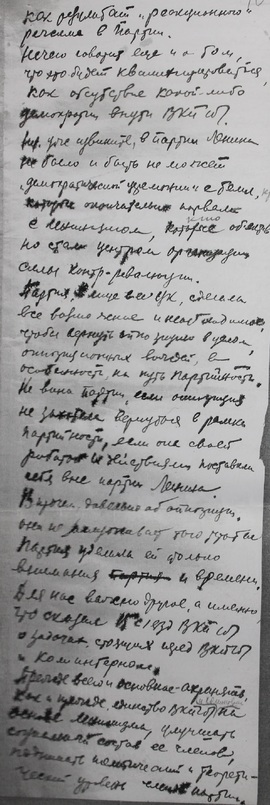 как результат "реакционного"
режима в партии.
Нечего говорить еще и о том,
что это будет квалифицироваться,
как отсутствие какой либо
демократии внутри ВКП(б).
Ну, уже извините, в партии Ленина
не было и быть не может
"демократической церемонии" с теми,
которые окончательно порвали
с ленинизмом, кто
но стали центром организации
силы контр-революции.
Партия, в лице все ЦК, сделала
все возможное и необходимое,
чтобы вернуть оппозицию в целом,
оппозиционных вождей, в
особенности, на путь партийности.
Не вина партии, если оппозиция
не захотела вернуться в рамки
партийности, если она своей
работой и действиями поставила
себя вне партии Ленина.
Впрочем, довольно об оппозиции,
она не заслуживает того, чтобы
партия уделяла ей столько
внимания и времени.
Для нас важно другое, а именно,
что сказал 15 съезд ВКП(б)
о задачах, стоящих перед ВКП(б)
и Коминтерном.
Прежде всего и основное - охранять,
как и прежде, единство ВКП(б) на
основе ленинизма, улучшать
социальный состав ее членов,
поднимать политический и теорети-
ческий уровень членов партии,